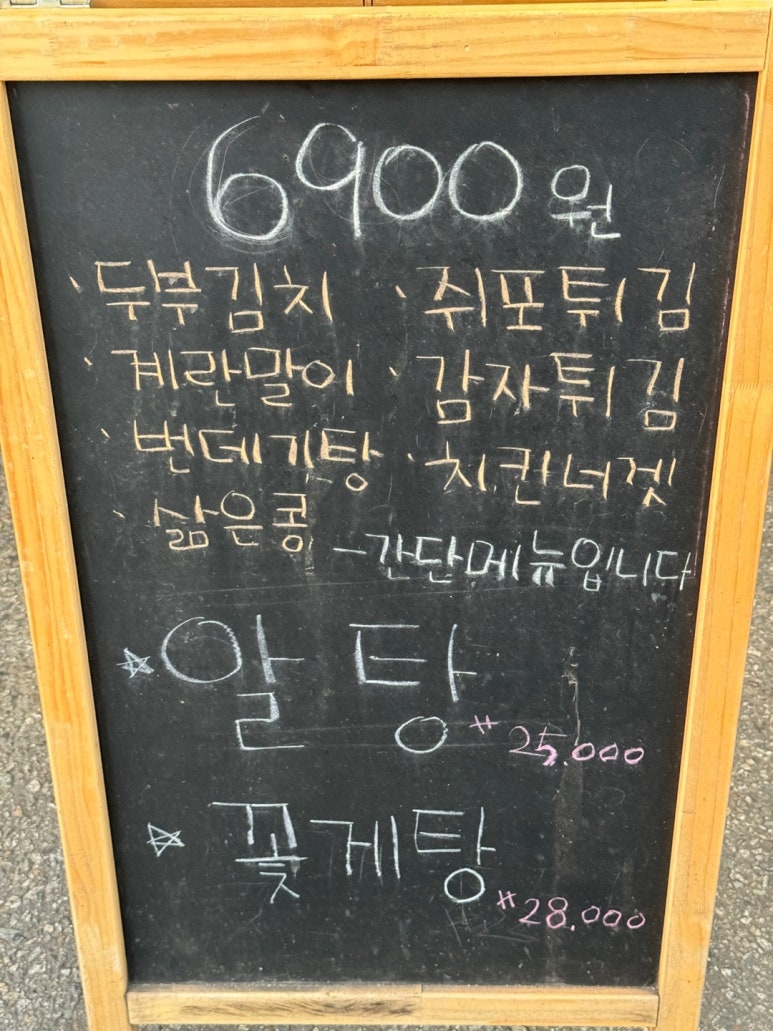 6900원
· 두부김치 · 쥐포튀김
· 계란말이 · 감자튀김
· 번데기탕 · 치킨너겟
· 삶은콩
-간단메뉴입니다
☆알탕
25.000
☆꽃게탕
28.000